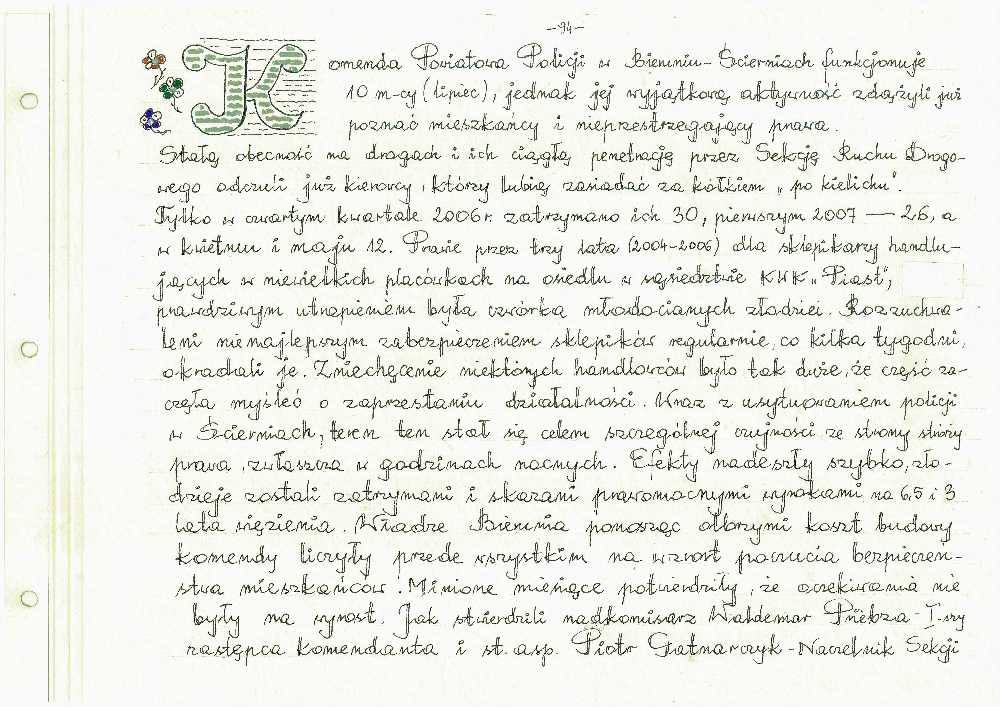 -94-
Komenda Powiatowa Policji w Bieruniu-Ścierniach funkcjonuje
10 m-cy (lipiec), jednak jej wyjątkową aktywność zdążyli już
poznać mieszkańcy i nieprzestrzegający prawa.
Stałą obecność na drogach i ich ciągłą penetrację przez Sekcję Ruchu Drogo-
wego odczuli już kierowcy, którzy lubią zasiadać za kółkiem „po kielichu".
Tylko w czwartym kwartale 2006 r. zatrzymano ich 30, pierwszym 2007 — 26, a
w kwietniu i maju 12. Prawie przez trzy lata (2004-2006) dla sklepikarzy handlu-
jących w niewielkich placówkach na osiedlu w sąsiedztwie KWK „Piast",
prawdziwym utrapieniem była czwórka młodocianych złodziei. Rozzuchwa-
leni nienajlepszym zabezpieczeniem sklepików regularnie, co kilka tygodni,
okradali je. Zniechęcenie niektórych handlowców było tak duże, że część za-
częła myśleć o zaprzestaniu działalności. Wraz z usytuowaniem policji
w Ścierniach, teren ten stał się celem szczególnej czujności ze strony stróży
prawa, zwłaszcza w godzinach nocnych. Efekty nadeszły szybko, zło-
dzieje zostali zatrzymani i skazani prawomocnymi wyrokami na 6,5 i 3
lata więzienia. Władze Bierunia ponosząc olbrzymi koszt budowy
komendy liczyły przede wszystkim na wzrost poczucia bezpieczeń-
stwa mieszkańców. Minione miesiące potwierdziły, że oczekiwania nie
były na wyrost. Jak stwierdzili nadkomisarz Waldemar I-szy
zastępca komendanta i st. asp. Piotr Gatnarczyk - Naczelnik Sekcji